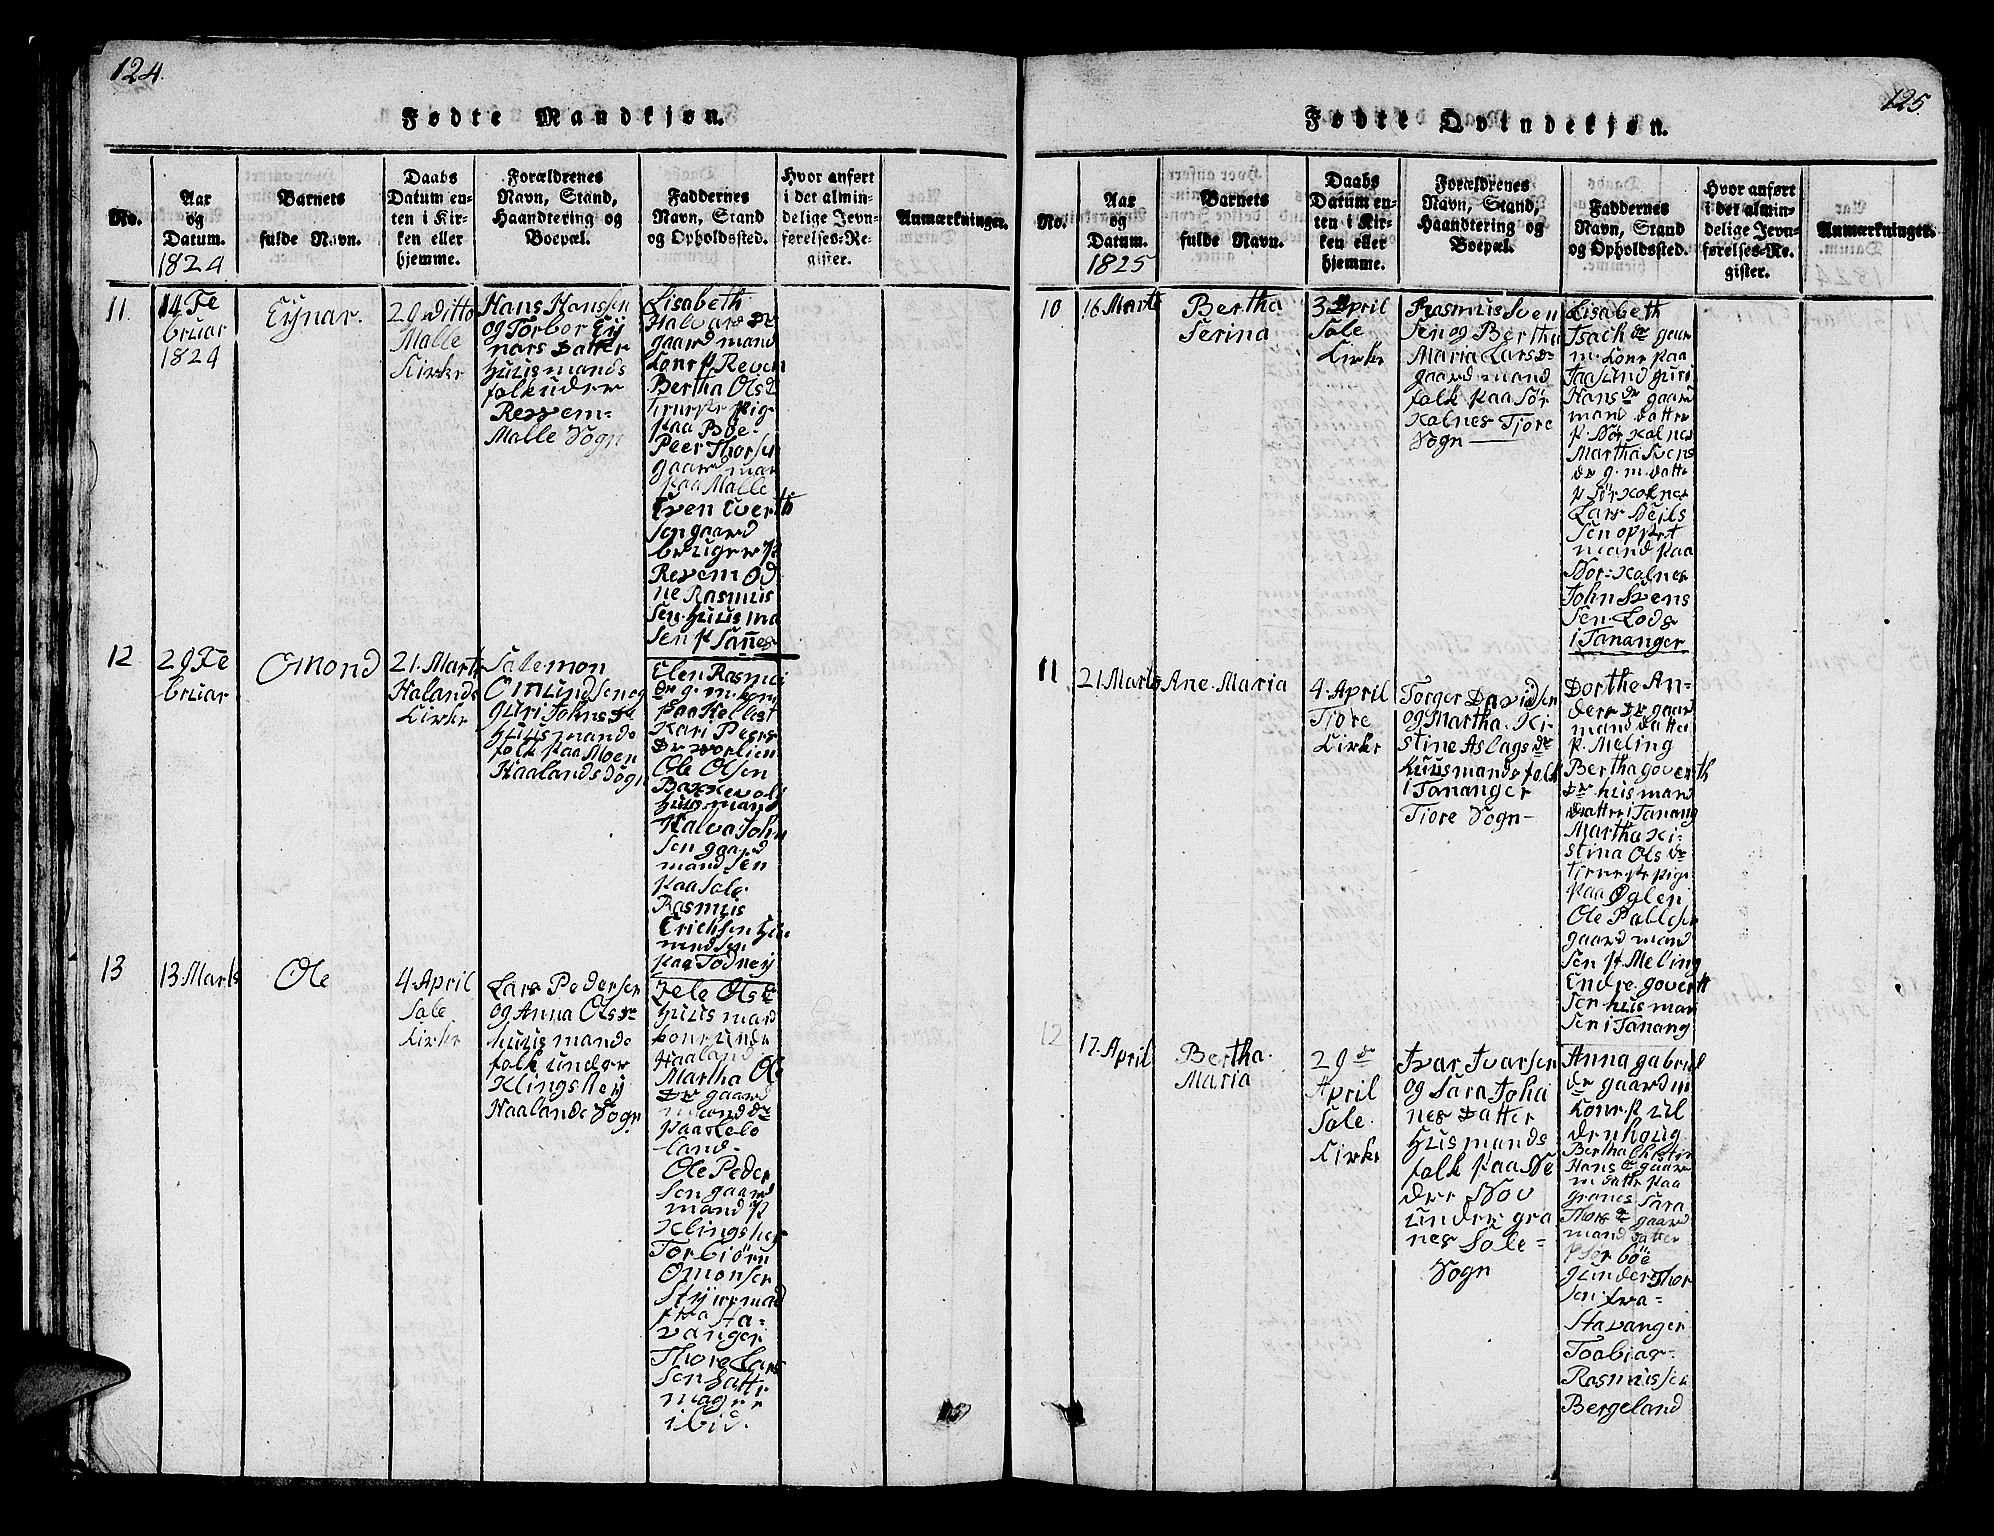 124.
Fødte Mandkjøn.
No.
Aar
og
Datum.
1824
Barnets
fulde Navn.
Daabs
Datum en-
ten i Kir-
ken eller
hjemme.
Forældrenes
Navn, Stand,
Haandtering og
Boepæl.
Faddernes
Navn, Stand
og Opholdssted.
Hvor anført
i det almin-
delige Jevn-
førelses-Re-
gister.
Anmærkninger.
11.
14 Fe
bruar
1824
Eynar.
29 ditto
Malle
Kirke
Hans Hansen
og Torbor Eÿ
nars Datter
Huusmands
folk under
Revem-
Malle Sogn
Lisabeth
Halvars Dr
gaard mand
Kone p Reven
Bertha Olsd
tieneste pig
paa Böe-
Peer Thorsen
gaard man
paa Malle
Even Everth
Sen gaard
bruger p
Revem Od
ne Rasmus
Sen Huusma
Sen p Sannes
12
29 Fe
bruar
Omond
21. Marts
Halands
Kirke
Salemon
Omundsen og
guri Johns Dr
Huusmands
folk paa Moen
Haalands Sogn
Elen Rasmu
Dr g. m. kone
paa
Kari Peers
Dr
Ole Olsen
Huusmand
Halva John
Sen gaard
mand Sen
paa Sole.
Rasmus
Erichsen Hu
mand Sen
paa Todneÿ
13
13. Marts
Ole
4. April
Sole
Kirke
Lars Pedersen
og Anna Ols Dr
huusmands
folk under
Klingsheÿ
Haalands Sogn
Zele Ols Dr
Huusmand
kone under
Haaland
Martha Ole
Dr gaard
mand Dr
paa
land-
Ole Peder
Sen gaard
mand p
Klingshey
Torbiörn
Omonsen
Styrmand
fra Sta-
vanger
Thore Lars
Sen hatte
mager
ibid.
125.
Fødte Qvindekjøn.
No.
Aar
og
Datum.
1825
Barnets
fulde Navn.
Daabs
Datum en-
ten i Kir-
ken eller
hjemme.
Forældrenes
Navn, Stand,
Haandtering og
Boepæl.
Faddernes
Navn, Stand
og Opholdssted.
Hvor anført
i det almin-
delige Jevn-
førelses-Re-
gister.
Anmærkninger.
10
16 Marts
Bertha
Serina
3 April
Sole
Kirke
Rasmus Sven
Sen og Bertha
Maria Lars Dr
gaard mand
folk paa Sör
Kolnes Tjore
Sogn
Lisabeth
Isach Dr gaar
m. Kone paa
Jaasund guri
Hans Dr gaar
mand datter
p. Sör Kolnes
Martha Svens
Dr g. m. datte
p Sör Kolnes
Lars Neils
Sen oppset
mand paa
Nor-Kolnes
John Svens
Sen Lods
i Tananger
11
21 Marts
Ane. Maria
4. April
Tjore
Kirke
Torger Davidsen
og Martha. Ki-
stine Aslags Dr
huusmands folk
i Tananger
Tjore Sogn-
Dorthe An-
ders Dr gaar
mand datter
p. Meling
Bertha goverth
Dr huismand
datter i Tanang
Martha Ki-
stina Ols Dr
tieneste pige
paa Oglen
Ole Pallesen
gaard mand
Sen p. Meling
Endre. govert
Sen husman
Sen i Tanang
12
17. April
Bertha.
Maria
29 de
April
Sole.
Kirke
Ivar Ivarsen
og Sara Joha
nes Datter
Husmands
folk paa Ne
der Nov
under gra
nes Sole=
Sogn
Anna gabriel
Dr gaard m
Kone. p ul
denhoug
Bertha Christin
Hans Dr gaar
m datte paa
granes Sara
Thors Dr gaar
mand datter
p Sör böe
gunder Thor
Sen. fra-
Stavanger
Toobias-
Rasmussen
Bergeland